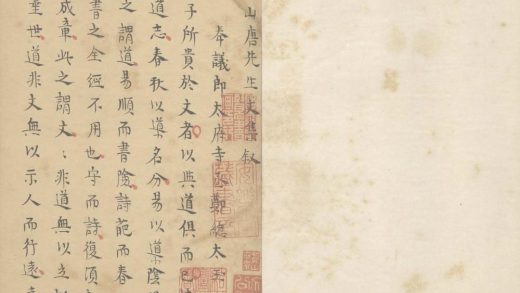 山唐先生文集叙
奉議郎太府寺丞鄭總太
子所貴於文者以與道俱而已
道志春秋以導名分易以導陰
之謂道易順而書險詩葩而春
書之全經不用也字而詩復
成章此之謂文〻非道無以立
世道非文無以示人而行遠